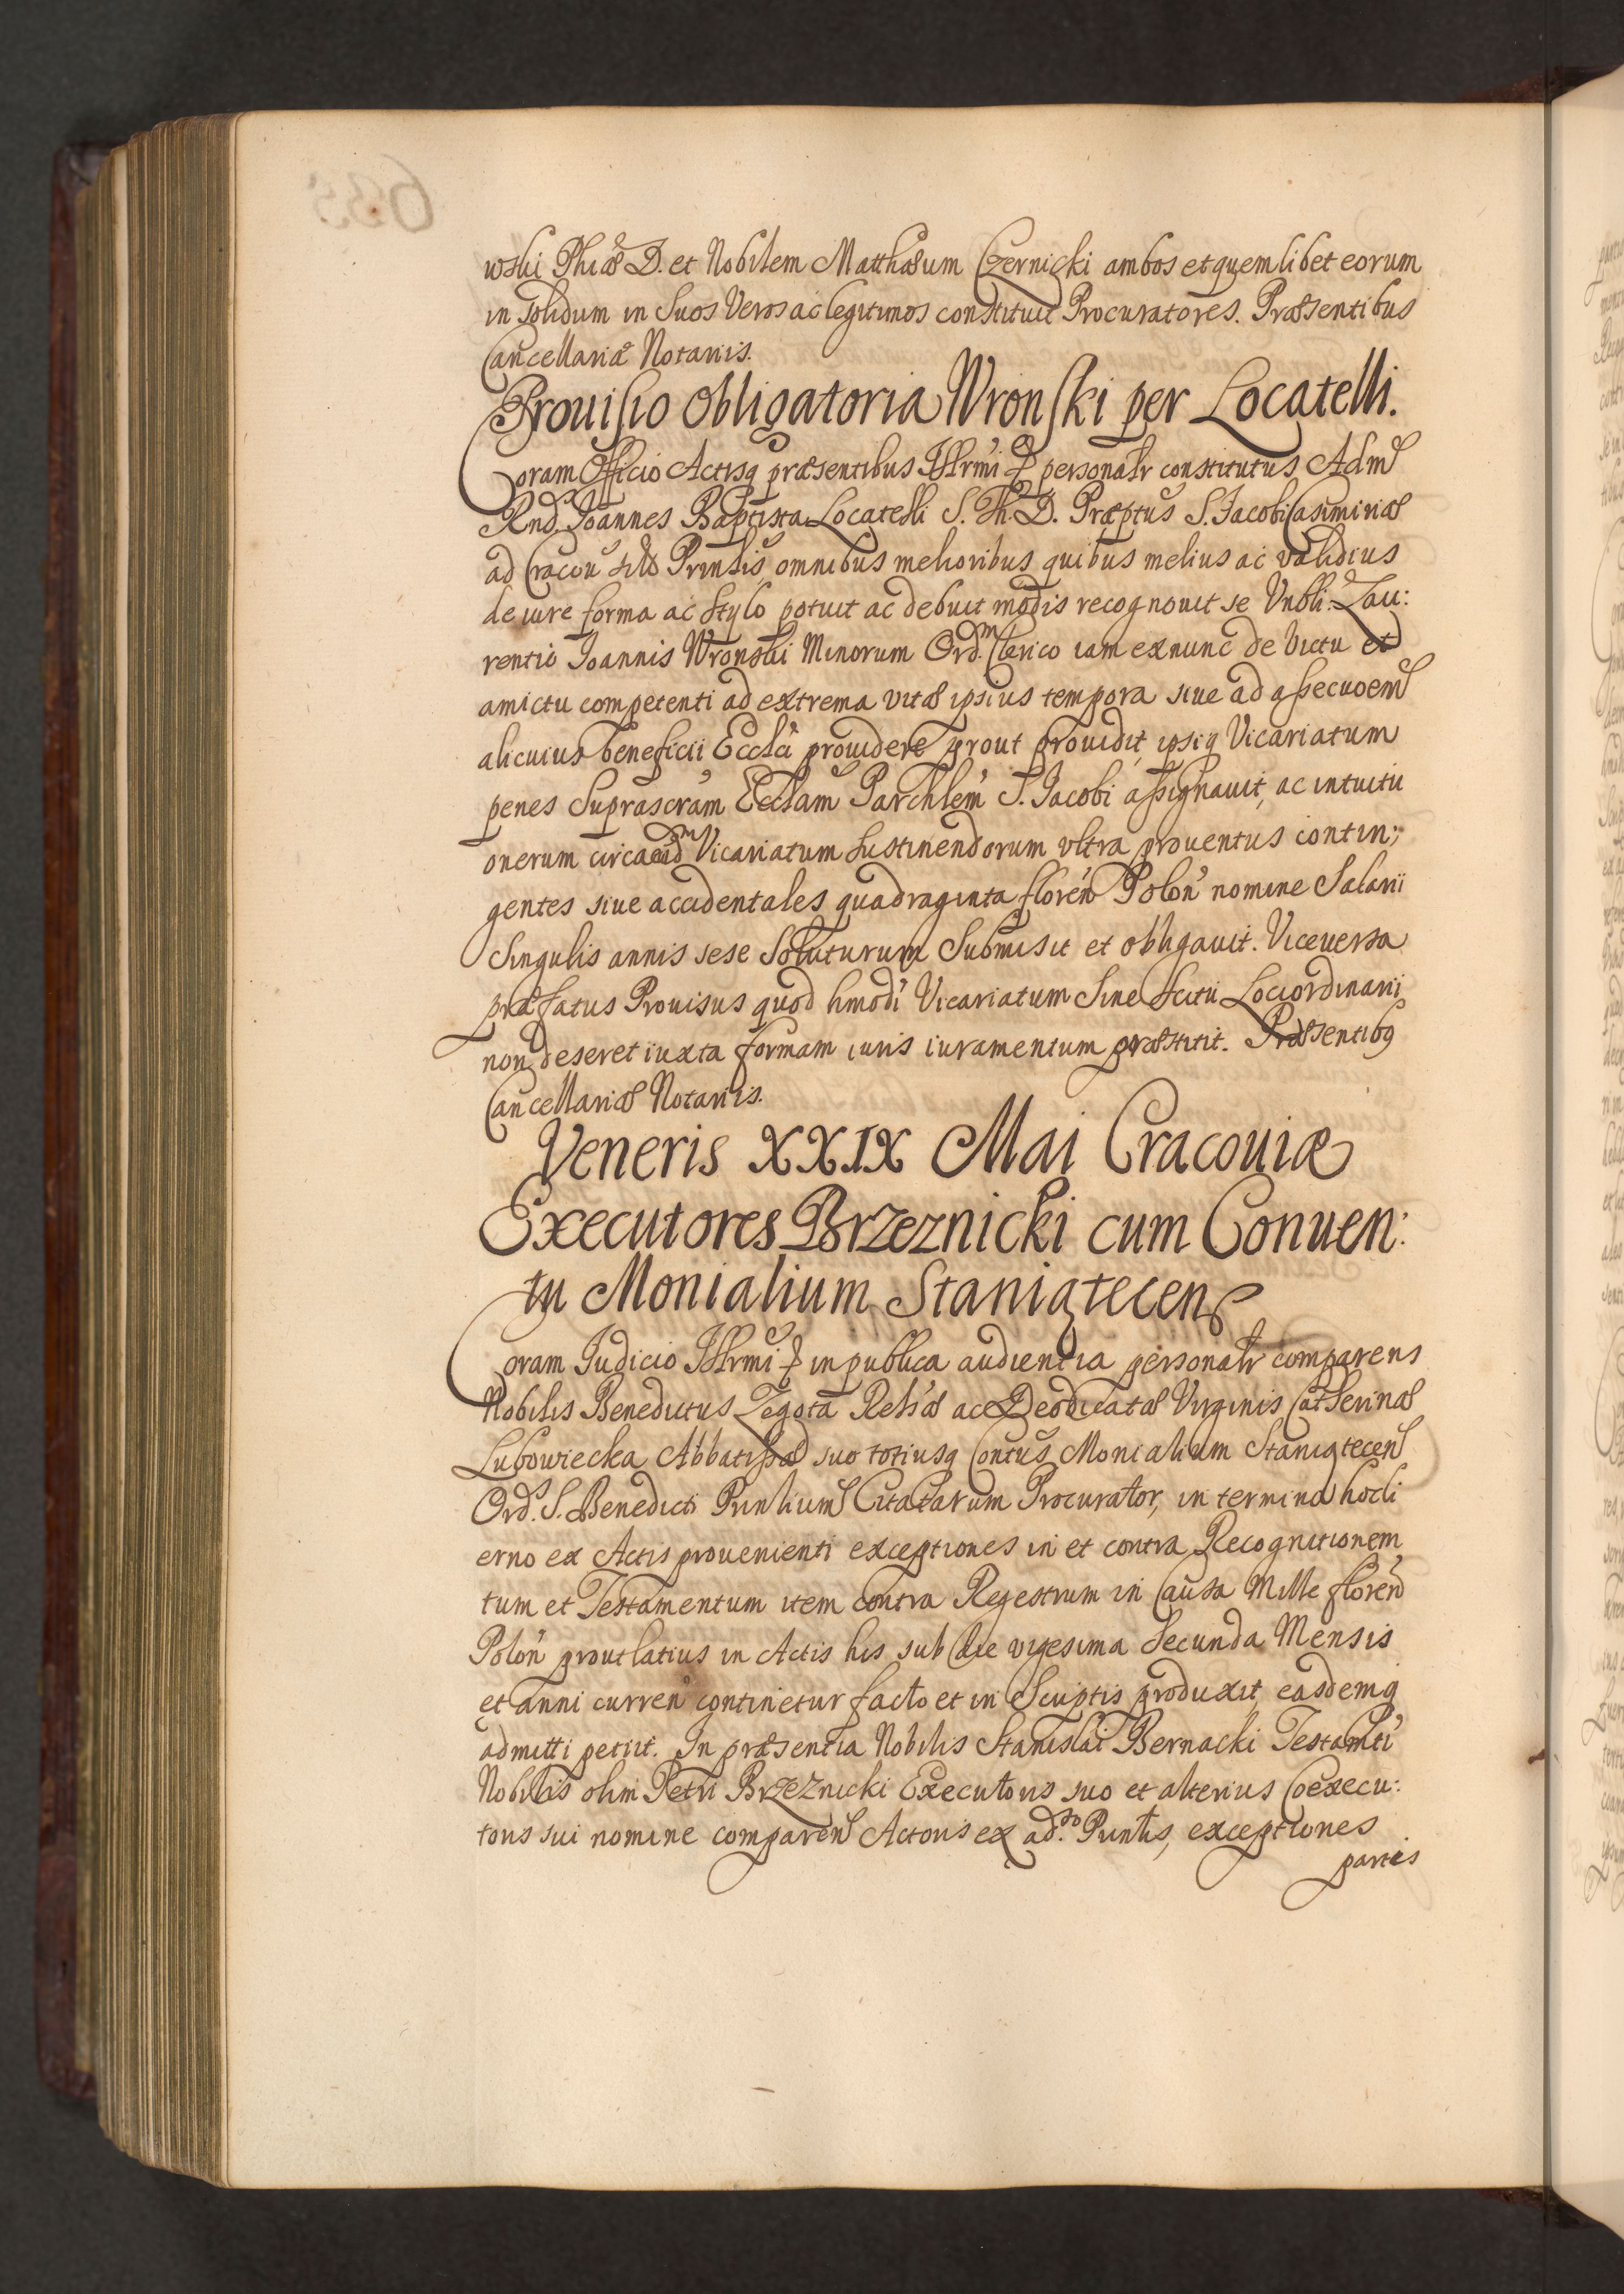 wski Phiæ D. et Nobilem Matthæum Czernicki ambos et quemlibet eorum
in Solidum in Suos Veros ac legitimos constituit Procuratores. Præsentibus
Cancellariæ Notariis.
Prouisio Obligatoria Wronski per Locatelli.
Coram Officio Actisq præsentibus Illrmi personalr constitutus Adm
Rnd Joannes Baptista Locatelli S. Th. D. Præptus S. Jacobi Casimiriæ
ad Cracou Prinlis omnibus melioribus quibus melius ac validius
de iure forma ac Stylo potuit ac debuit modis recognouit se Vnbli Lau:
rentio Joannis Wronski Minorum Ord.m Clerico iam exnunc de Victu et
amictu competenti ad extrema vitæ ipsius tempora siue ad assecuoem
alicuius beneficii Eccla prouidere prout prouidit ipsiq Vicariatum
penes Suprascram Ecclam Parchlem S. Jacobi assignauit, ac intuitu
onerum circa eudm Vicariatum Sustinendorum vltra prouentus contin:
gentes siue accidentales quadraginta floren Polon nomine Salarii
Singulis annis sese Soluturum Submisit et obligauit. Viceuersa
præfatus Prouisus quod hmodi Vicariatum Sine Scitu Lociordinarii
non deseret iuxta formam iuris iuramentum præstitit. Præsentibq
Cancellariæ Notariis.
Veneris XXIX Mai Cracouiæ
Executores Brzeznicki cum Conuen:
tu Monialium Staniątecen
Coram Judicio Illrmi in publica audientia personalr comparens
Nobilis Benedictus Zegota Relsæ ac Deodicatæ Virginis Catherinæ
Lubowiecka Abbatissæ suo totiusq Contus Monialium Staniątecen
Ord.s S. Benedicti Prinlium Citatarum Procurator, in termino hodi
erno ex Actis prouenienti exceptiones in et contra Recognitionem
tum et Testamentum item contra Regestrum in Causa Mille floren
Polon prout latius in Actis his sub die vigesima Secunda Mensis
et anni curren continetur facto et in Scriptis produxit, easdemq
admitti petiit. In præsentia Nobilis Stanislai Bernacki Testamti
Nobilis olim Petri Brzeznicki Executoris suo et alterius Coexecu:
toris sui nomine comparen Actoris ex ad.so Prinlis, exceptiones
partis